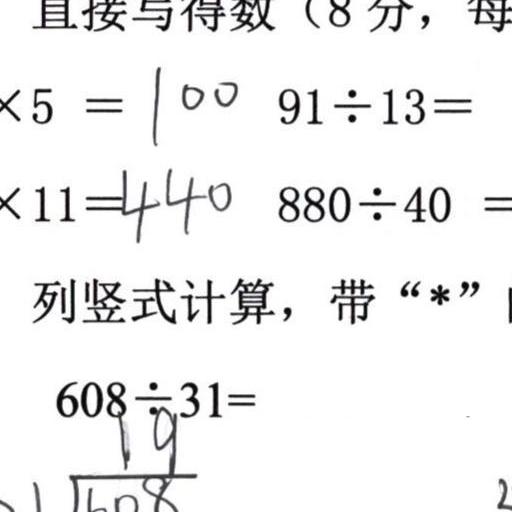 直接写得数（8 分，每
×5 = 100 91÷13=
×11=440 880÷40 =
列竖式计算，带“*”
608÷31=
19
1 608